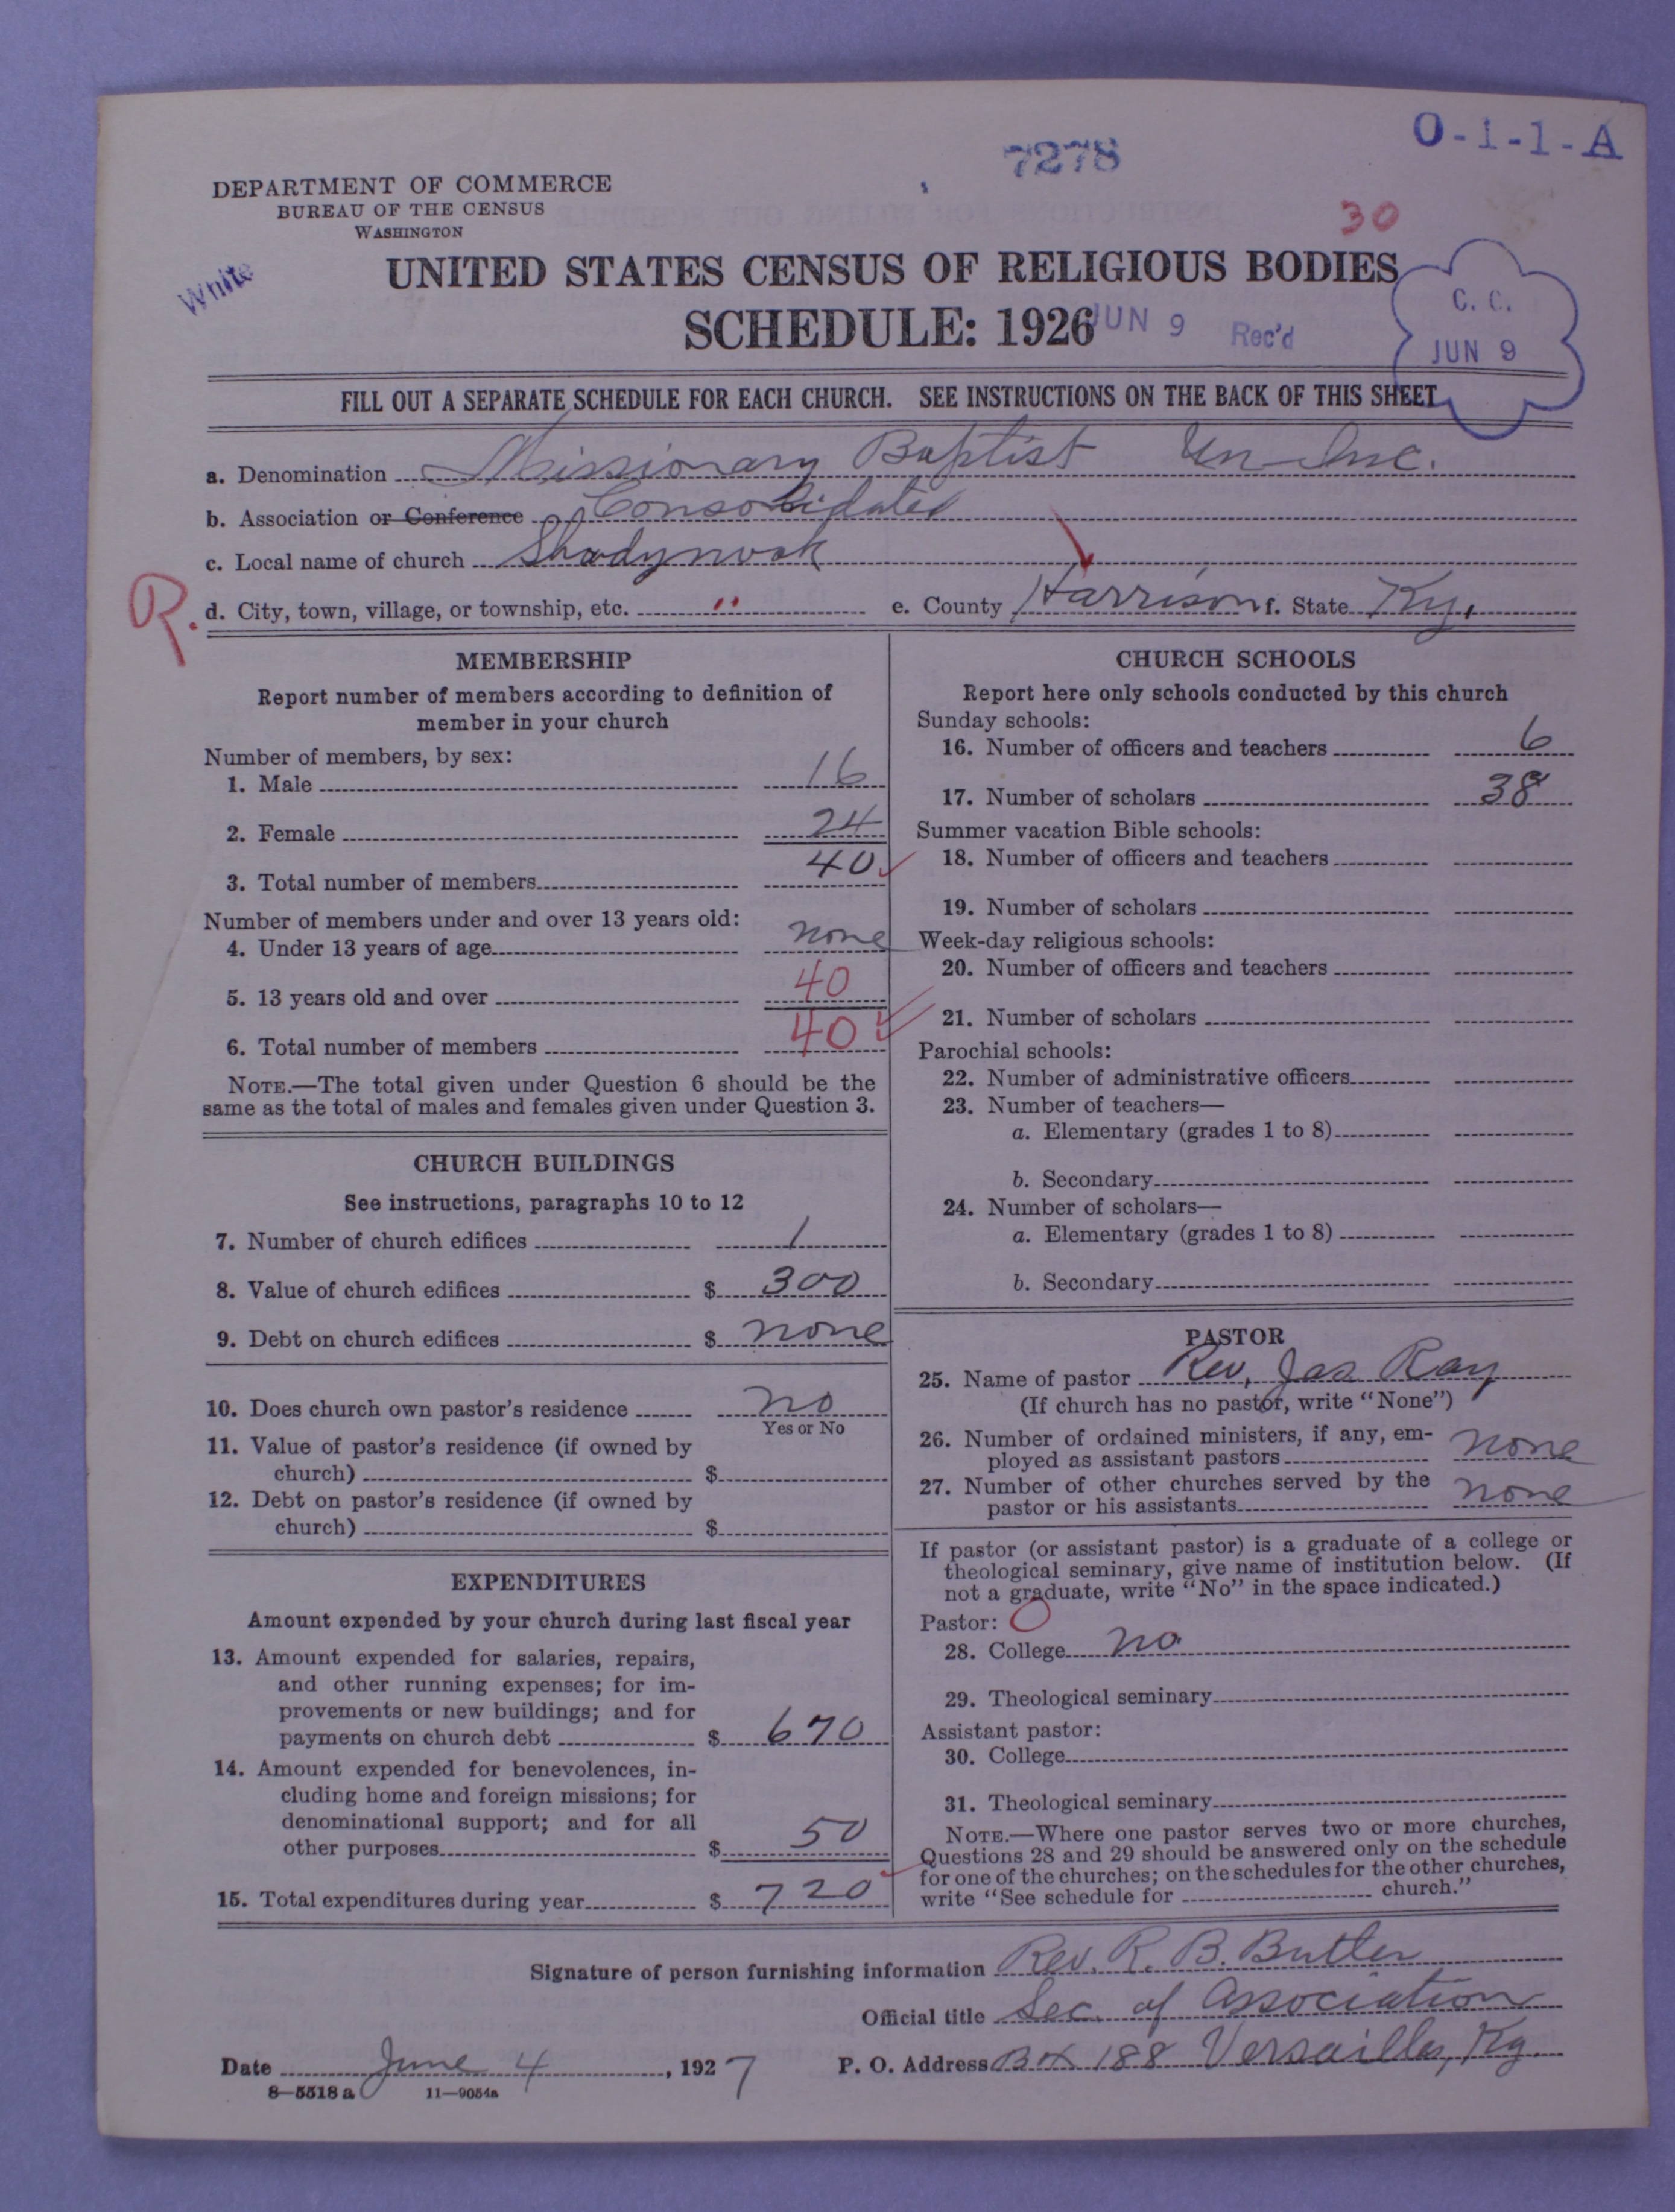 O-1-1-A
7278
DEPARTMENT OF COMMERCE
BUREAU OF THE CENSUS
WASHINGTON
30
White
UNITED STATES CENSUS OF RELIGIOUS BODIES
SCHEDULE: 1926
JUN 9 Rec'd
C. C.
JUN 9
FILL OUT A SEPARATE SCHEDULE FOR EACH CHURCH. SEE INSTRUCTIONS ON THE BACK OF THIS SHEET
a. Denomination Missionary Baptist Un-Inc.
b. Association or Conference Consolidated
c. Local name of church Shadynook
R. d. City, town, village, or township, etc. " e. County Harrison f. State Ky.
MEMBERSHIP
Report number of members according to definition of
member in your church
Number of members, by sex:
1. Male 16
2. Female 24
3. Total number of members 40
Number of members under and over 13 years old:
4. Under 13 years of age none
5. 13 years old and over 40
6. Total number of members 40
NOTE.—The total given under Question 6 should be the
same as the total of males and females given under Question 3.
CHURCH BUILDINGS
See instructions, paragraphs 10 to 12
7. Number of church edifices 1
8. Value of church edifices $ 300
9. Debt on church edifices $ none
10. Does church own pastor's residence no
Yes or No
11. Value of pastor's residence (if owned by
church) $
12. Debt on pastor's residence (if owned by
church) $
EXPENDITURES
Amount expended by your church during last fiscal year
13. Amount expended for salaries, repairs,
and other running expenses; for im-
provements or new buildings; and for
payments on church debt $ 670
14. Amount expended for benevolences, in-
cluding home and foreign missions; for
denominational support; and for all
other purposes $ 50
15. Total expenditures during year $ 720
CHURCH SCHOOLS
Report here only schools conducted by this church
Sunday schools:
16. Number of officers and teachers 6
17. Number of scholars 38
Summer vacation Bible schools:
18. Number of officers and teachers
19. Number of scholars
Week-day religious schools:
20. Number of officers and teachers
21. Number of scholars
Parochial schools:
22. Number of administrative officers
23. Number of teachers—
a. Elementary (grades 1 to 8)
b. Secondary
24. Number of scholars—
a. Elementary (grades 1 to 8)
b. Secondary
PASTOR
25. Name of pastor Rev. Jas Ray
(If church has no pastor, write "None")
26. Number of ordained ministers, if any, em-
ployed as assistant pastors none
27. Number of other churches served by the
pastor or his assistants none
If pastor (or assistant pastor) is a graduate of a college or
theological seminary, give name of institution below. (If
not a graduate, write "No" in the space indicated.)
Pastor: O
28. College no
29. Theological seminary
Assistant pastor:
30. College
31. Theological seminary
NOTE.—Where one pastor serves two or more churches,
Questions 28 and 29 should be answered only on the schedule
for one of the churches; on the schedules for the other churches,
write "See schedule for church."
Signature of person furnishing information Rev. R. B. Butler
Official title Sec. of Association
Date June 4, 1927 P. O. Address Box 188 Versailles, Ky.
8—5518 a 11—9054a